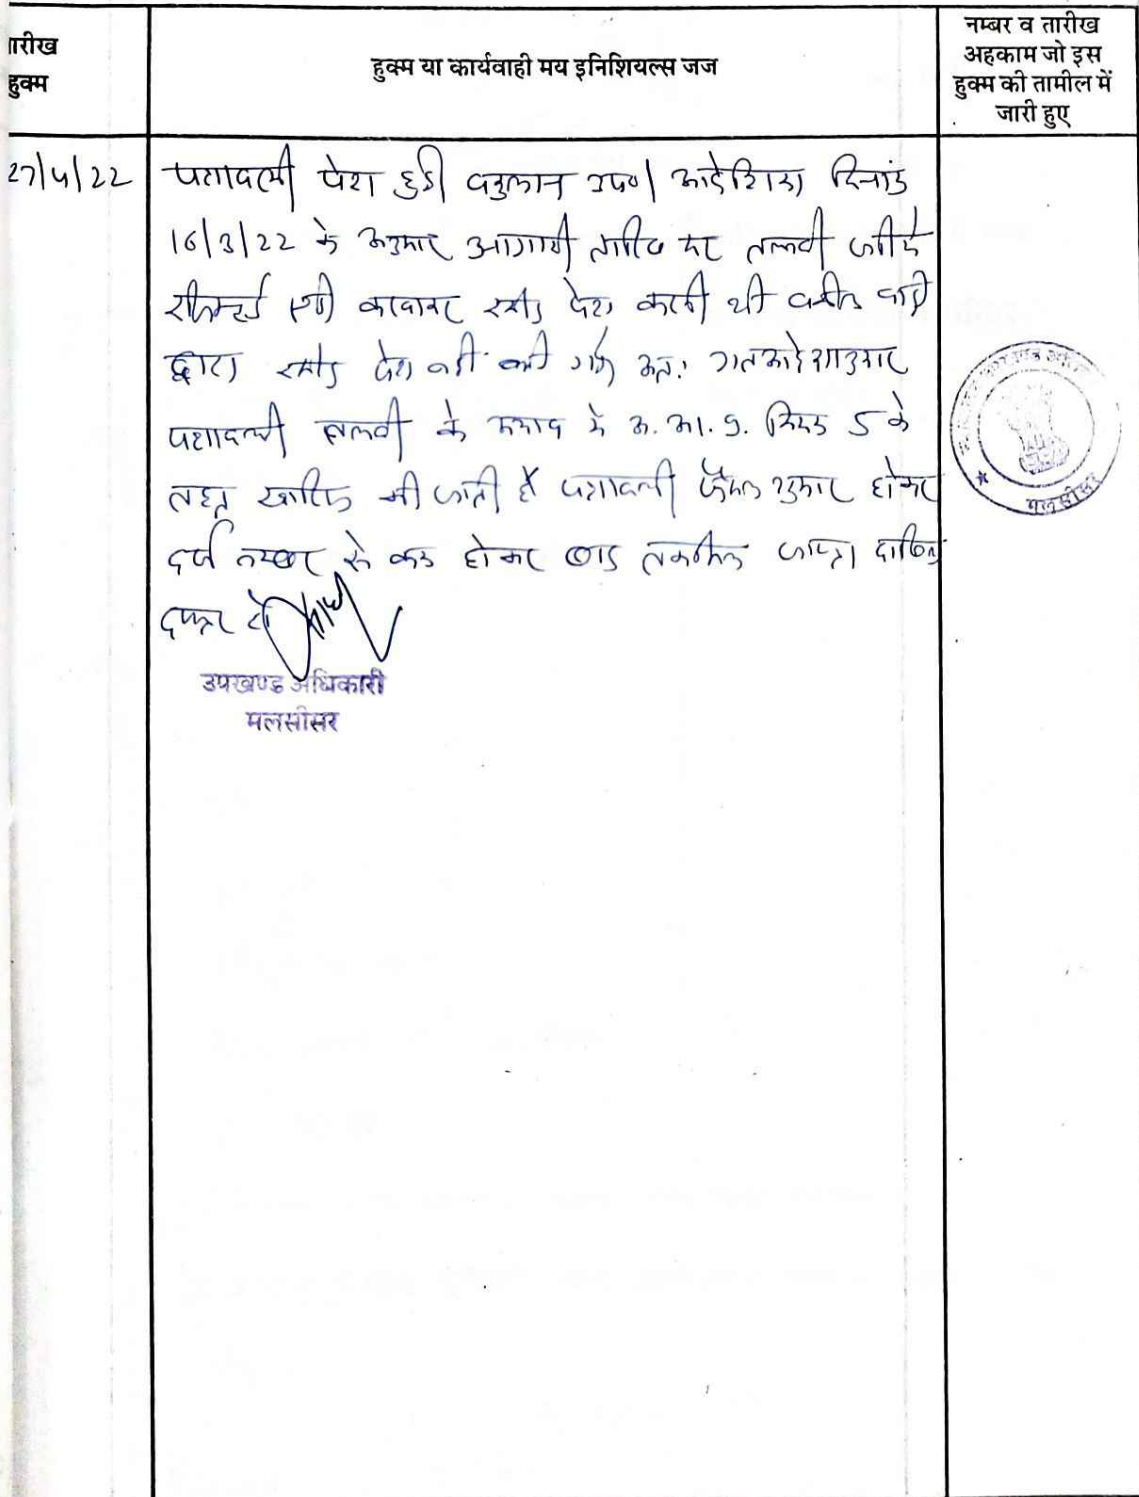 तारीख
हुक्म
हुक्म या कार्यवाही मय इनिशियल्स जज
नम्बर व तारीख
अहकाम जो इस
हुक्म की तामील में
जारी हुए
27/4/22
पत्रावली पेश हुई वकुलान उप0। आदेशिका दिनांक
16/3/22 के अनुसार आगामी तारीख पर तलबी जरिये
रजिस्टर्ड ऐडी करवाकर रसीद पेश करनी थी वकील वादी
द्वारा रसीद पेश नही की गई अतः गतआदेशानुसार
पत्रावली तलबी के अभाव में आ. 9. नियम 5 के
तहत खारिज की जाती है पत्रावली फैसल शुमार होकर
दर्ज नम्बर से कम होकर बाद तकमील जाप्ता दाखिल
दफ्तर हो
उपखण्ड अधिकारी
मलसीसर
मलसीसर